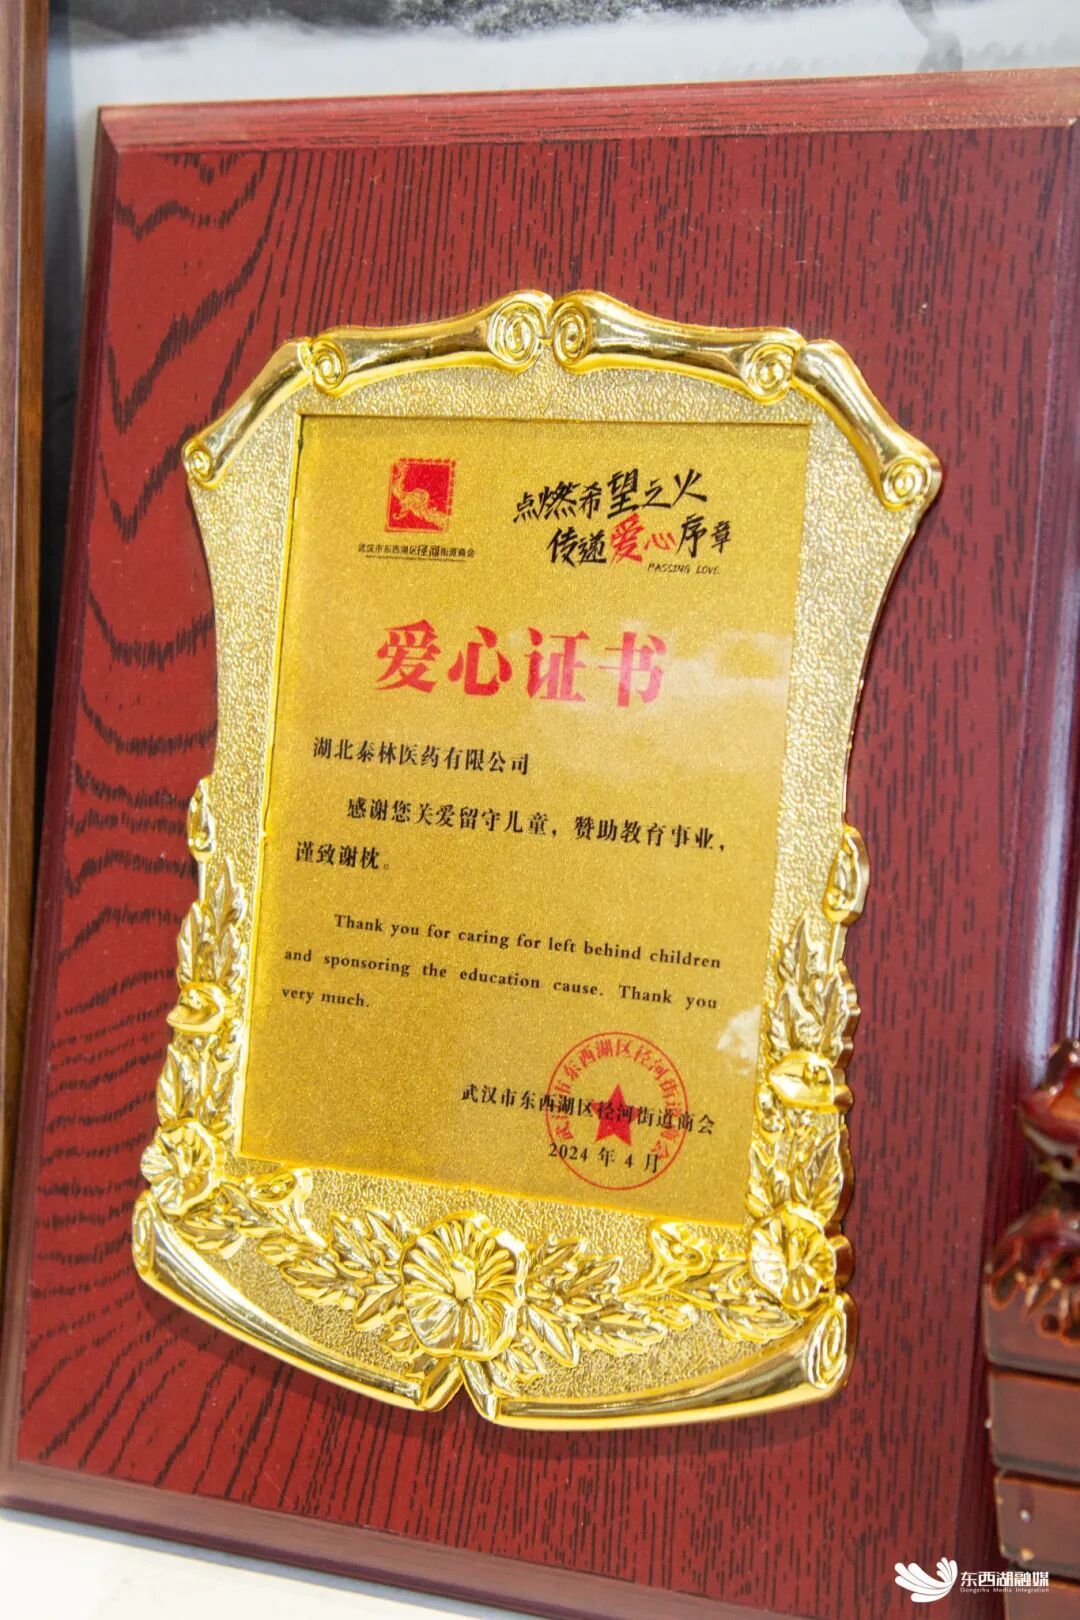 点燃希望之火
传递爱心序章
PASSING LOVE
武汉市东西湖区径河街道商会
爱心证书
湖北泰林医药有限公司
感谢您关爱留守儿童，赞助教育事业，
谨致谢枕。
Thank you for caring for left behind children
and sponsoring the education cause. Thank you
very much.
武汉市东西湖区径河街道商会
武汉市东西湖区径河街道商会
2024 年 4 月
东西湖融媒
Dongxihu Media Integration